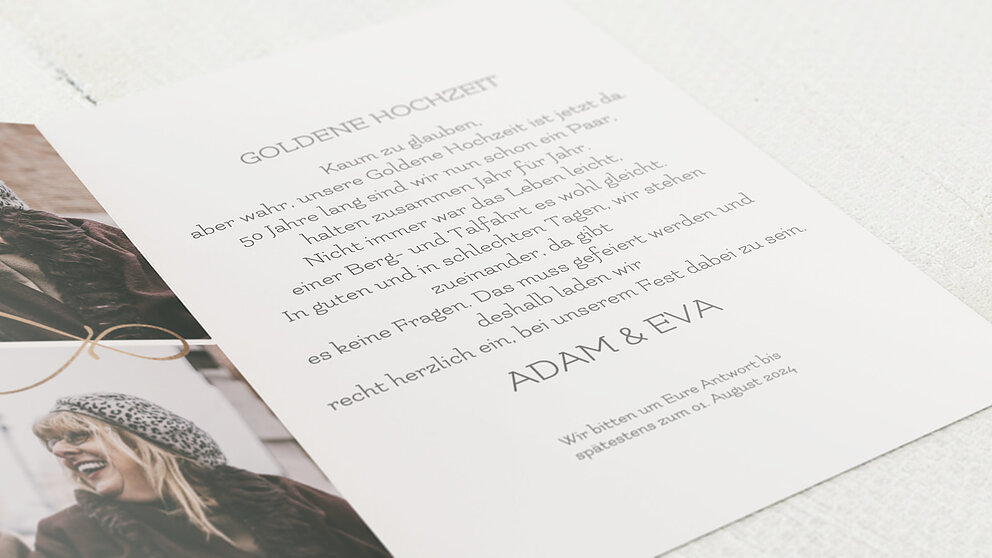 GOLDENE HOCHZEIT
Kaum zu glauben,
aber wahr, unsere Goldene Hochzeit ist jetzt da.
50 Jahre lang sind wir nun schon ein Paar,
halten zusammen Jahr für Jahr.
Nicht immer war das Leben leicht,
einer Berg- und Talfahrt es wohl gleicht.
In guten und in schlechten Tagen, wir stehen
zueinander, da gibt
es keine Fragen. Das muss gefeiert werden und
deshalb laden wir
recht herzlich ein, bei unserem Fest dabei zu sein.
ADAM & EVA
Wir bitten um Eure Antwort bis
spätestens zum 01. August 2024